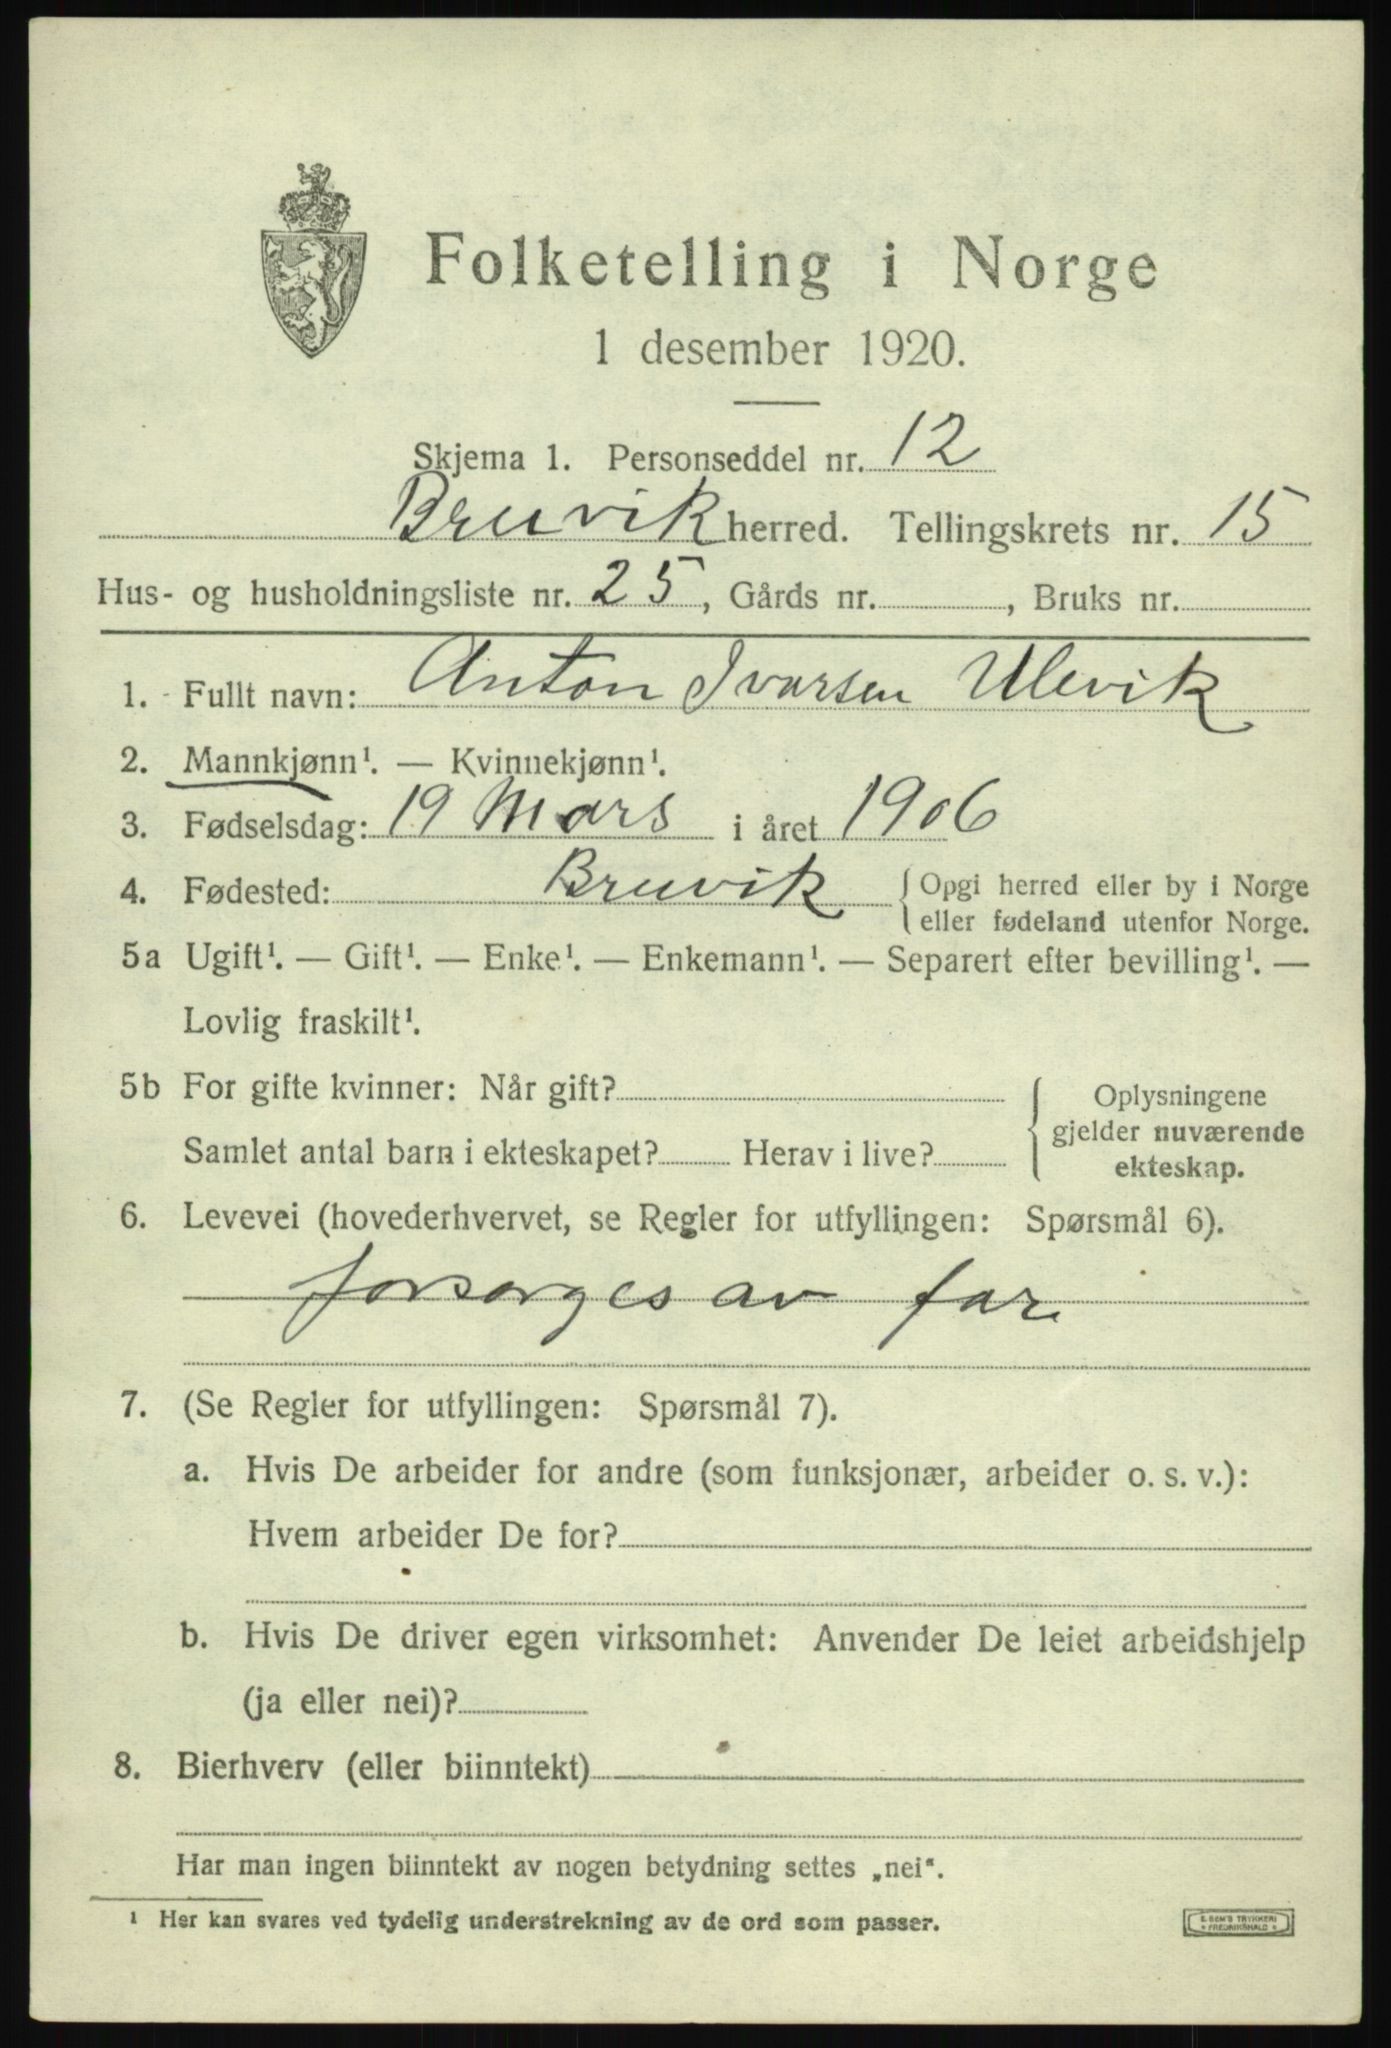 Folketelling i Norge
1 desember 1920.
Skjema 1. Personseddel nr. 12
Bruvik herred. Tellingskrets nr. 15
Hus- og husholdningsliste nr. 25, Gårds nr. , Bruks nr.
1. Fullt navn: Anton Ivarsen Ulevik
2. Mannkjønn¹. — Kvinnekjønn¹.
3. Fødselsdag: 19 Mars i året 1906
4. Fødested: Bruvik {Opgi herred eller by i Norge
eller fødeland utenfor Norge.
5a Ugift¹. — Gift¹. — Enke¹. — Enkemann¹. — Separert efter bevilling¹. —
Lovlig fraskilt¹.
5b For gifte kvinner: Når gift?
Samlet antal barn i ekteskapet? Herav i live?
Oplysningene
gjelder nuværende
ekteskap.
6. Levevei (hovederhvervet, se Regler for utfyllingen: Spørsmål 6).
forsorges av far
7. (Se Regler for utfyllingen: Spørsmål 7).
a. Hvis De arbeider for andre (som funksjonær, arbeider o. s. v.):
Hvem arbeider De for?
b. Hvis De driver egen virksomhet: Anvender De leiet arbeidshjelp
(ja eller nei)?
8. Bierhverv (eller biinntekt)
Har man ingen biinntekt av nogen betydning settes „nei“.
¹ Her kan svares ved tydelig understrekning av de ord som passer.
E. SEM'S TRYKKERI
* FREDRIKSHALD *